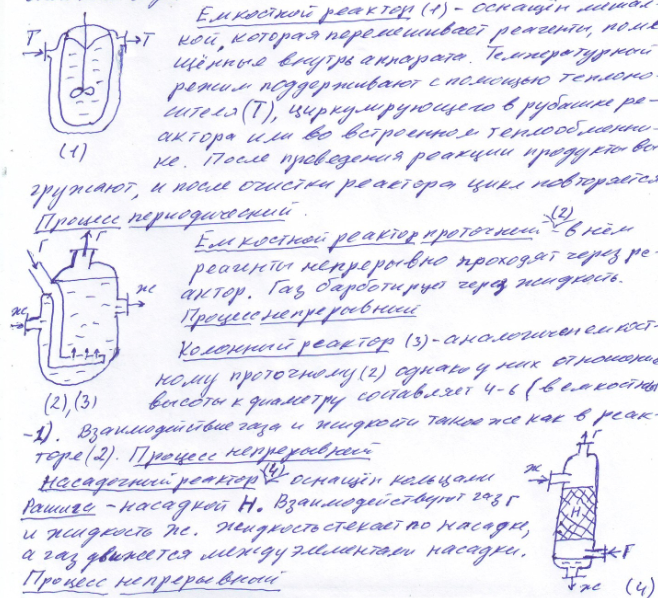 Емкостной реактор (1) - оснащён мешал-
кой, которая перемешивает реагенты, поме-
щённые внутрь аппарата. Температурный
режим поддерживают с помощью теплоно-
сителя (Т), циркулирующего в рубашке ре-
актора или во встроенном теплообменни-
ке. После проведения реакции продукты вы
гружают, и после очистки реактора цикл повторяется
Процесс периодический.
Т Т
(1)
Емкостной реактор проточный (2) - в нём
реагенты непрерывно проходят через ре-
актор. Газ барботирует через жидкость.
Процесс непрерывный
Г Г
ж ж
(2), (3)
Колонный реактор (3) - аналогичен емкост-
ному проточному (2) однако у них отношение
высоты к диаметру составляет 4-6 (в емкостных
-1). Взаимодействие газа и жидкости такое же как в реак-
торе (2). Процесс непрерывный
Насадочный реактор (4) оснащён кольцами
Рашига - насадкой Н. Взаимодействуют газ Г
и жидкость ж. Жидкость стекает по насадке,
а газ движется между элементами насадки.
Процесс непрерывный
Г
ж
Н
Г
ж
(4)